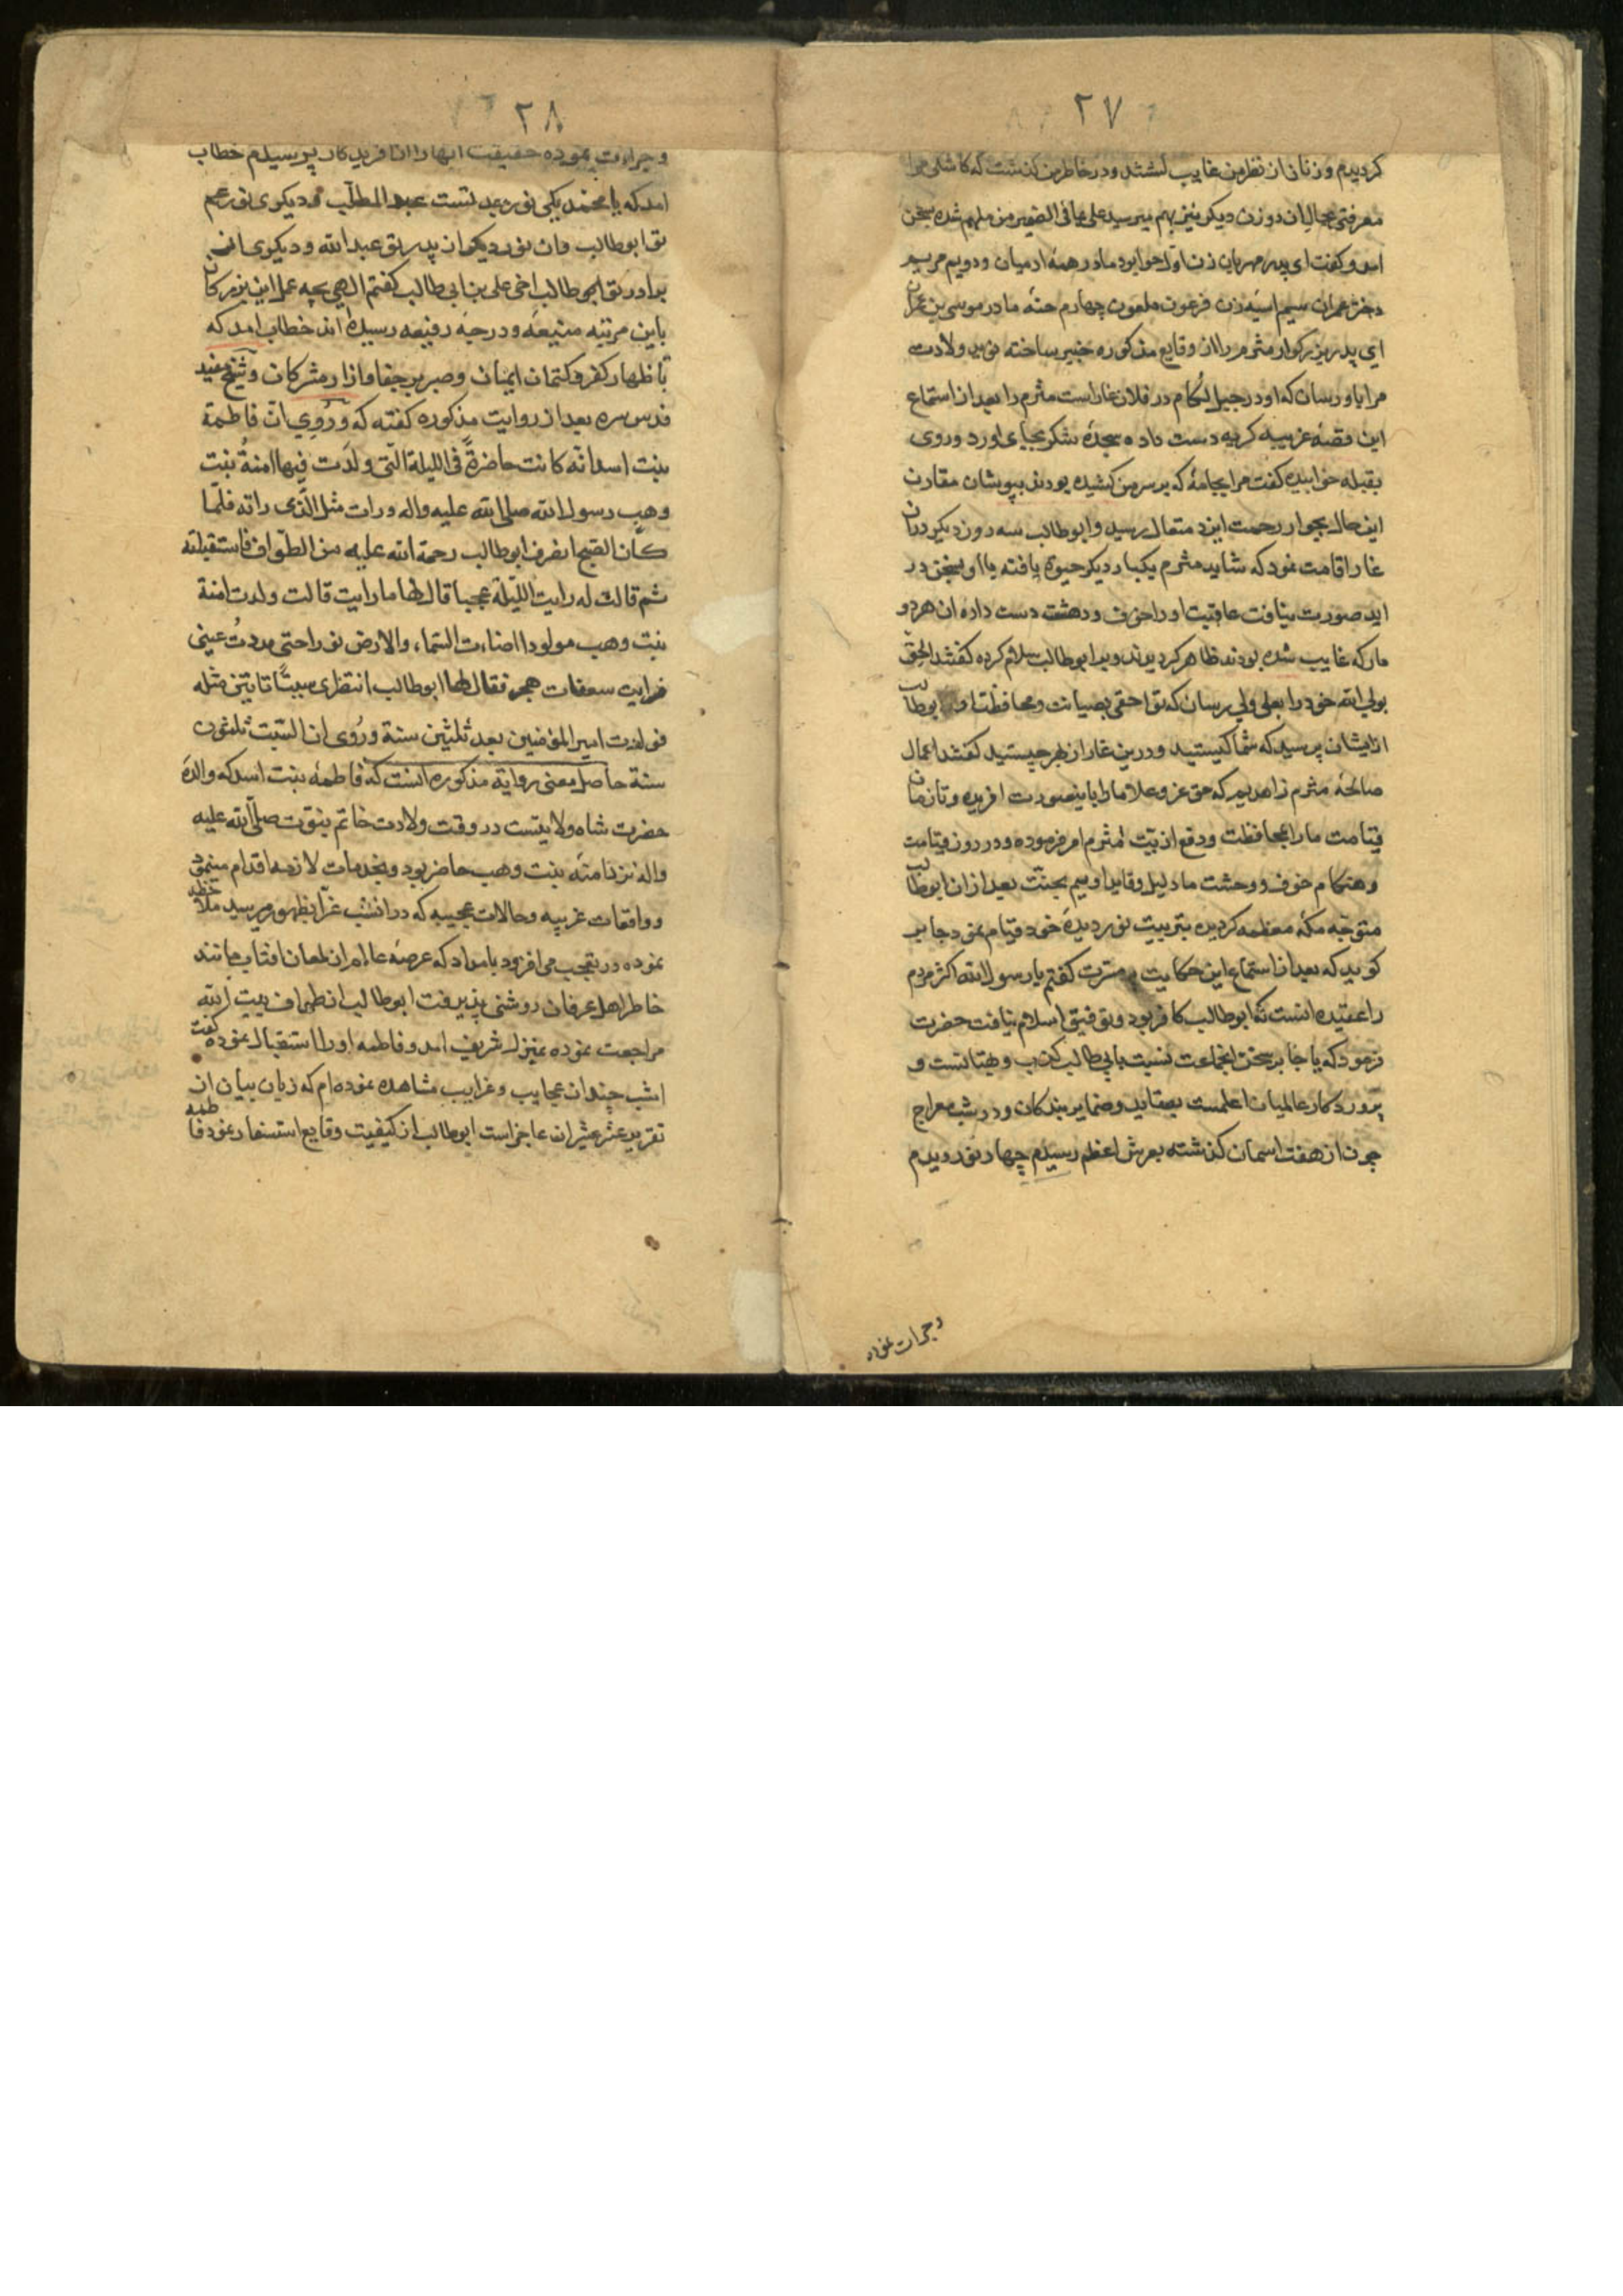 ۲۷
کردیدم و زنان از نظر من غایب کشتند و در خاطر من کذشت که کاش مرا
معرفتی بحال ان دو زن دیکر نیز بهم میرسید علی بما فی الضمیر من ملهم شده بسخن
امد و کفت ای پدر مهربان زن اول حوا بود مادر همهٔ ادمیان و دویم مریم
دختر عمران سیم اسیه زن فرعون ملعون چهارم حنّه مادر موسی بن عمران
ای پدر بزرکوار مثرم را از وقایع مذکوره خبیر ساخته نوید ولادت
مرا باو رسان که او در جبل لکام در فلان غار است مثرم را بعد از استماع
این قصهٔ غریبه کریه دست داده سجدهٔ شکر بجای اورد و روی
بقبله خوابیده کفت مرا بجامهٔ که بر سر من کشیده بودی بپوشان مقارن
این حال بجوار رحمت ایزد متعال رسید و ابوطالب سه روز دیکر دران
غار اقامت نمود که شاید مثرم یکبار دیکر حیوة یافته با او بسخن در
اید صورت نیافت عاقبت او را خوف و دهشت دست داده ان هر دو
مار که غایب شده بودند ظاهر کردیدند و بر ابوطالب سلام کرده کفتند الحق
بولی الله خود را بعلی ولی رسان که تو احقی بصیانت و محافظت او ابوطالب
از ایشان پرسید که شما کیستید و درین غار از بهر چیستید کفتند اعمال
صالحهٔ مثرم زاهدیم که حق عز و علا ما را باینصورت افریده و تا زمان
قیامت ما را بمحافظت و دفع اذیت مثرم امر فرموده و در روز قیامت
و هنکام خوف و وحشت ما دلیل و قاید اوییم بجنّت بعد از ان ابوطالب
متوجه مکهٔ معظمه کردیده بتربیت نور دیدهٔ خود قیام نمود جابر
کوید که بعد از استماع این حکایت پر مسرت کفتم یا رسول الله اکثر مردم
را عقیده انست که ابوطالب کافر بود و توفیق اسلام نیافت حضرت
فرمود که یا جابر سخن انجماعت نسبت بابی طالب کذب و بهتانست و
پروردکار عالمیان اعلمست بعقاید و ضمایر بندکان و در شب معراج
چون از هفت اسمان کذشته بعرش اعظم رسیدم چهار نور دیدم
و جرات نموده
۲۸
و جرات نموده حقیقت انها را از افریدکار پرسیدم خطاب
امد که یا محمد یکی نور جد تست عبد المطلب و دیکری نور عم
تو ابوطالب و ان نور دیکر از پدر تو عبد الله و دیکری از
برادر تو ابوطالب اخی علی بن ابی طالب کفتم الهی بچه عمل این بزرکان
باین مرتبه منیعه و درجهٔ رفیعه رسیده اند خطاب امد که
باظهار کفر و کتمان ایمان و صبر بر جفا و ازار مشرکان و شیخ مفید
قدس سره بعد از روایت مذکوره کفته که و رُوِی انّ فاطمة
بنت اسد انّه کانت حاضرةً فی اللیلة الّتی ولدت فیها امنةُ بنت
وهب رسول الله صلی الله علیه واله ورات مثل الّذی راته فلمّا
کان الصبح انصرف ابوطالب رحمة الله علیه من الطّواف فاستقبلته
ثم قالت له رایت اللّیلة عجبا قال لها ما رایت قالت ولدت امنة
بنت وهب مولودا اضاءت السّماء والارض نورا حتی مددتُ عینی
فرایت سعفات هجر فقال لها ابوطالب انتظری سبتًا تاتین مثله
فولدت امیر المؤمنین بعد ثلثین سنة ورُوی ان السّبت ثلثون
سنة حاصل معنی روایة مذکوره انست که فاطمه بنت اسد که والدهٔ
حضرت شاه ولایتست در وقت ولادت خاتم نبوّت صلّی الله علیه
واله نزد امنه بنت وهب حاضر بود و بخدمات لازمه اقدام مینمود
و واقعات غریبه و حالات عجیبه که در انشب غرّا بظهور میرسید ملاحظه
نموده در تعجب می افزود بامداد که عرصهٔ عالم از لمعان افتاب مانند
خاطر اهل عرفان روشنی پذیرفت ابوطالب از طواف بیت الله
مراجعت نموده بمنزل شریف امد و فاطمه او را استقبال نموده کفت
امشب چندان عجایب و غرایب مشاهده نموده ام که زبان بیان از
تقریر عشر عشیر ان عاجز است ابوطالب از کیفیت وقایع استفسار نمود فاطمه